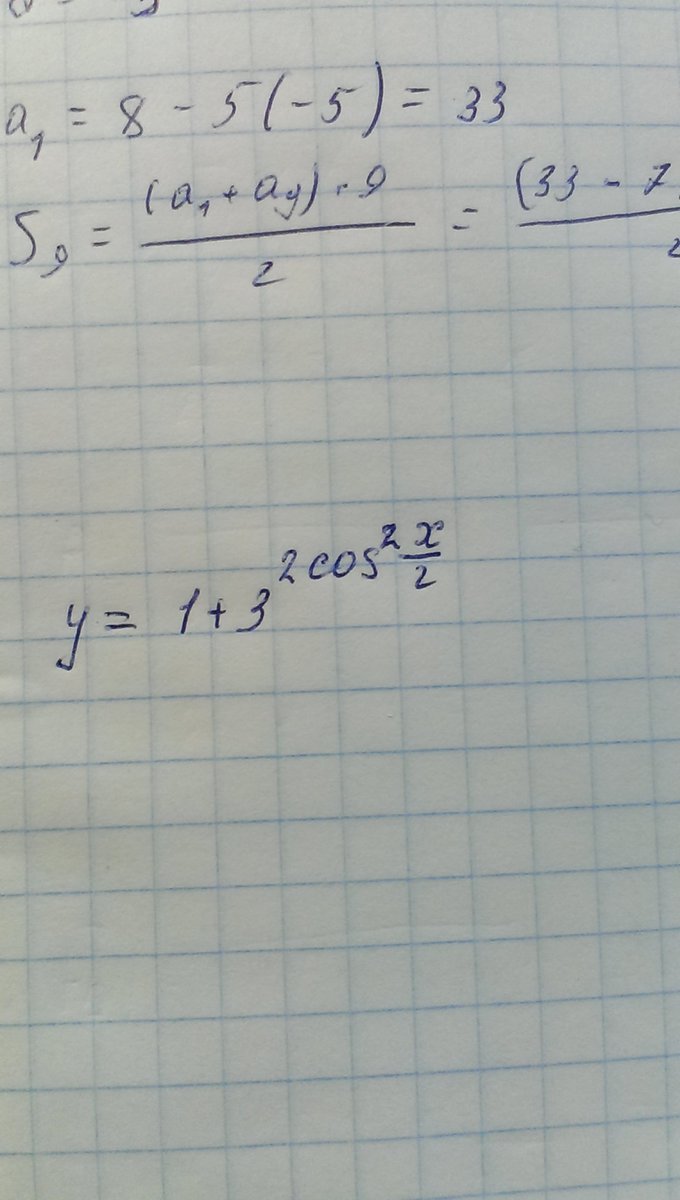 a₁ = 8 - 5(-5) = 33
S₉ = (a₁ + a₉) · 9 / 2 = (33 - 7 / 2
y = 1 + 3^(2cos² x/2)